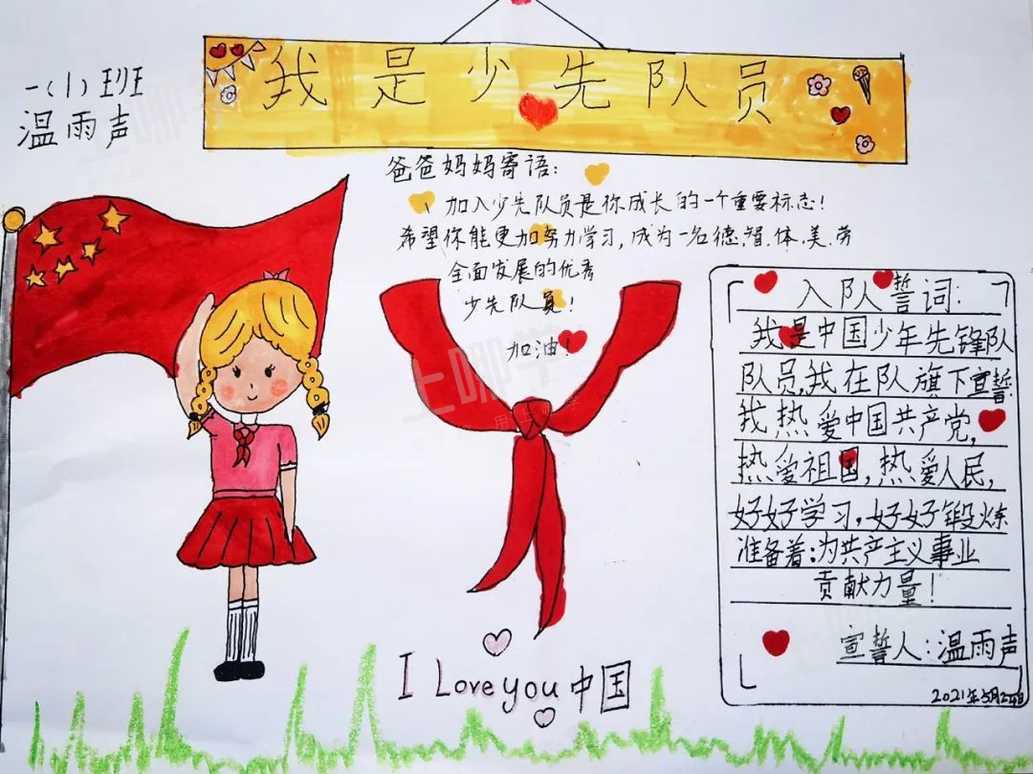 我是少先队员
一(1)班
温雨声
爸爸妈妈寄语:
加入少先队员是你成长的一个重要标志!
希望你能更加努力学习,成为一名德.智.体.美.劳
全面发展的优秀
少先队员!
加油!
入队誓词:
我是中国少年先锋队
队员,我在队旗下宣誓
我热爱中国共产党,
热爱祖国,热爱人民,
好好学习,好好锻炼
准备着:为共产主义事业
贡献力量!
宣誓人:温雨声
I Love you 中国